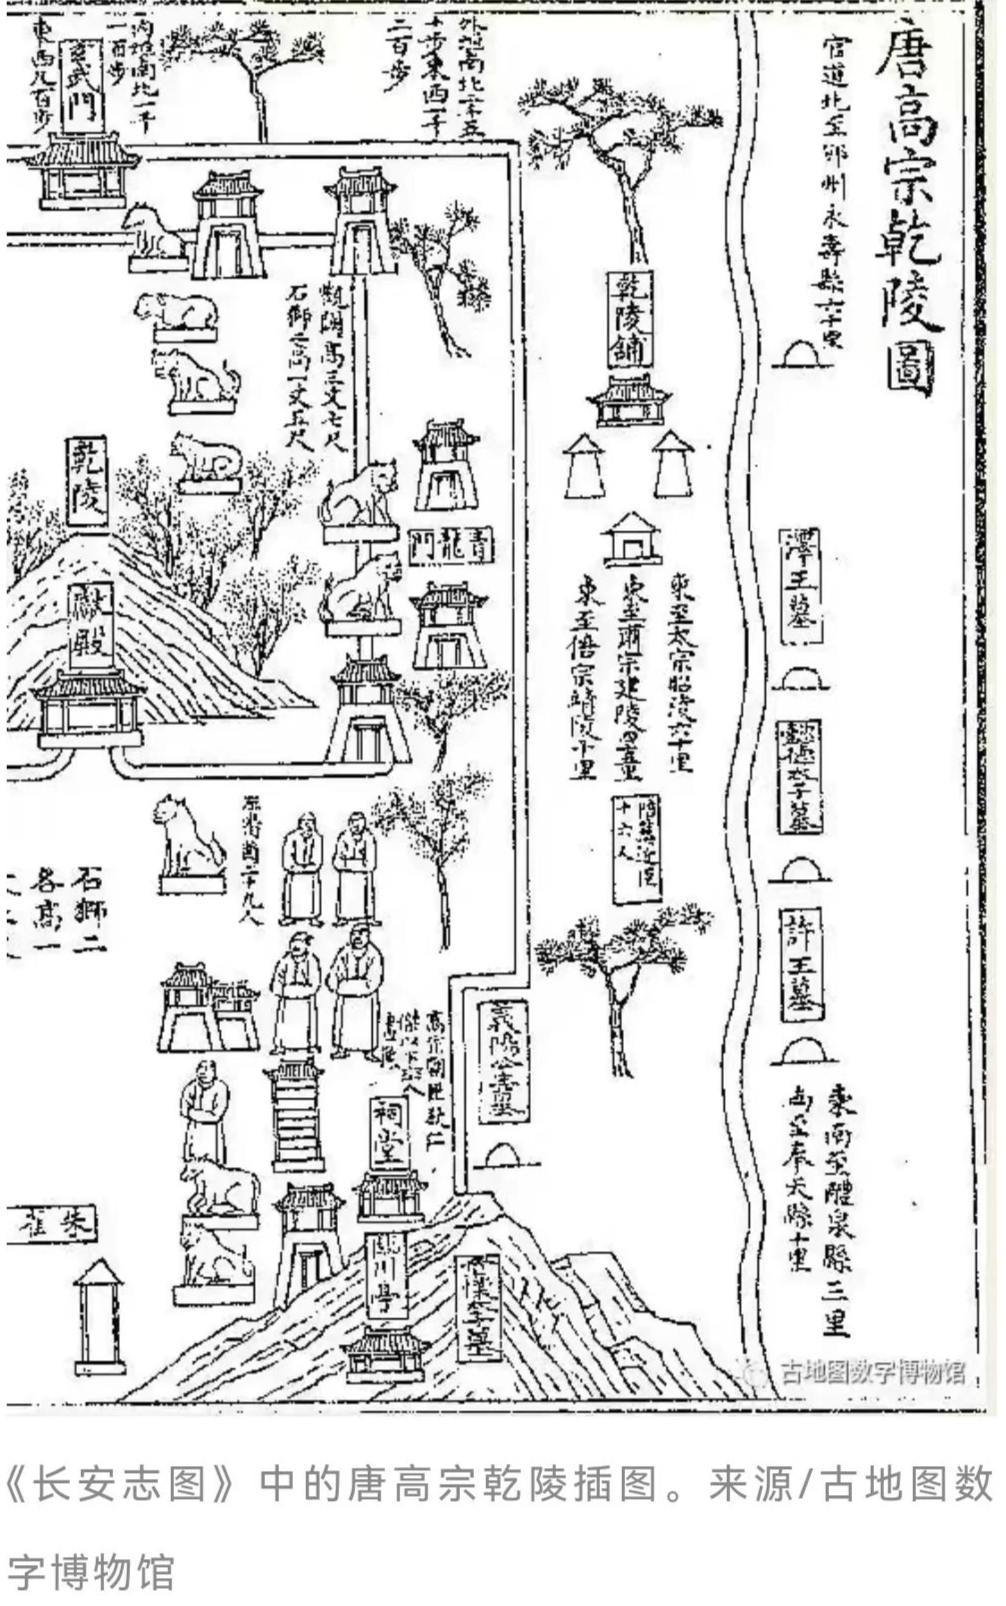 唐高宗乾陵圖
官道北至邠州永壽縣六十里
譚王墓
懿德太子墓
許王墓
東南至醴泉縣三里
西至奉天縣十里
乾陵鋪
東至太宗昭陵六十里
東至肅宗建陵四十里
東至僖宗靖陵十里
陪葬諸臣
十六人
外城南北一千五
十步東西一千
二百步
內城南北一千
一百步
東西九百步
玄武門
觀闕高三丈七尺
石獅二高一丈五尺
乾陵
獻殿
青龍門
石獅二
各高一
高宗朝臣狄仁
傑以下
祠堂
義陽公主墓
朱雀
古地图数字博物馆
《长安志图》中的唐高宗乾陵插图。来源/古地图数
字博物馆